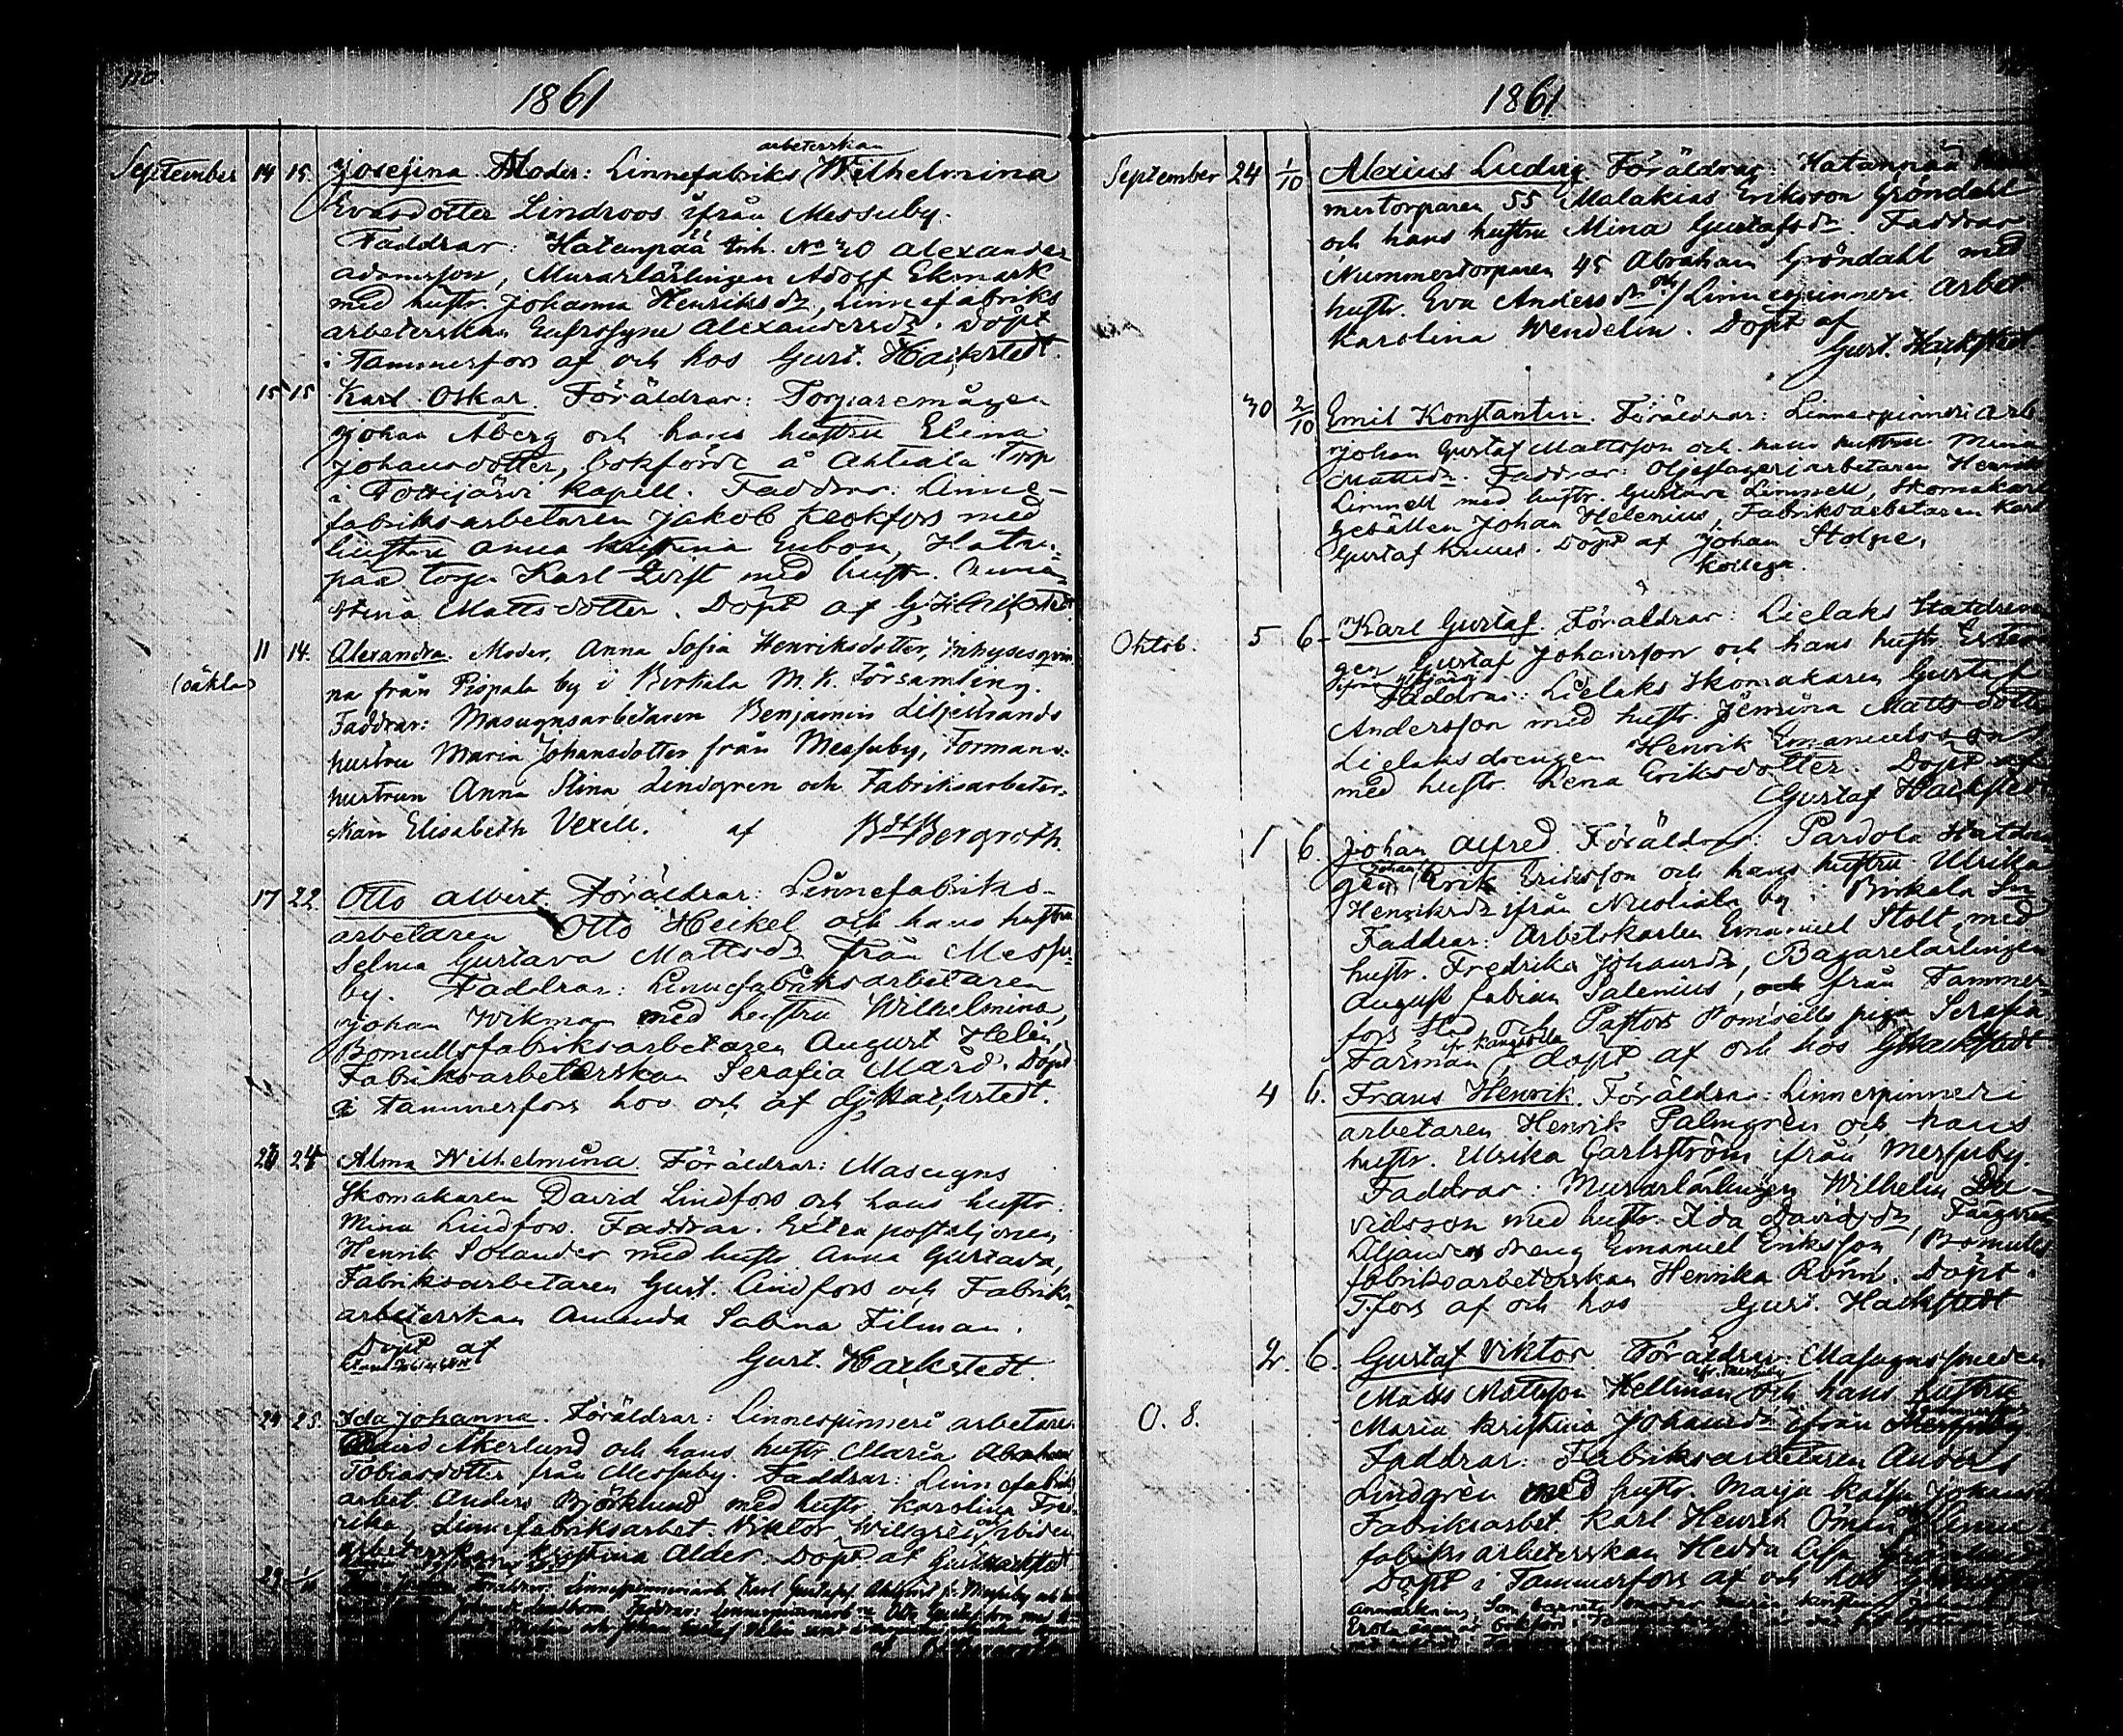 110.
1861
September 14 15. Josefina. Moder: Linnefabriks arbeterskan Wilhelmina
Evasdotter Lindroos ifrån Messuby.
Faddrar: Hatanpää Inh. No 30 Alexander
Adamsson, Murarlärlingen Adolf Ekmark
med hustr. Johanna Henriksdr, Linnefabriks
arbeterskan Eufrosyne Alexandersdr. Döpt
i Tammerfors af och hos Gust. Hackstedt.
15 15 Karl Oskar. Föräldrar: Torparemågen
Johan Åberg och hans hustru Elina
Johansdotter, bokförde å Ahtiala Torp
i Tottijärvi kapell. Faddrar: Linne-
fabriksarbetaren Jakob Keokfors med
hustru Anna Kristina Enbom, Hatan-
pää torp. Karl Qvist med hustr.
Stina Mattsdotter. Döpt af G. Hackstedt
11 14. Alexandra. Moder, Anna Sofia Henriksdotter, Inhysesqvin-
(oäkta) na från Pispala by i Birkala M. K. Församling.
Faddrar: Masugnsarbetaren Benjamin Liljestrands
hustru Maria Johansdotter från Messuby, Formans-
hustrun Anna Stina Lindgren och Fabriksarbeter-
skan Elisabeth Vexell. af Bergroth.
17 22. Otto Albert. Föräldrar: Linnefabriks-
arbetaren Otto Heikel och hans hustru
Selma Gustava Mattsdr från Messu-
by. Faddrar: Linnefabriksarbetaren
Johan Wikman med hustru Wilhelmina,
Bomullsfabriksarbetaren August Helin,
Fabriksarbeterskan Serafia Mård. Döpt
i Tammerfors hos och af G. Hackstedt.
23 24 Alma Wilhelmina. Föräldrar: Masugns
Skomakaren David Lindfors och hans hustr.
Mina Lindfors. Faddrar. Extra postiljonen
Henrik Solander med hustr. Anna Gustava,
Fabriksarbetaren Gust. Lindfors och Fabriks-
arbeterskan Amanda Sabina Filman.
Döpt af
Gust. Hackstedt.
24 25. Ida Johanna. Föräldrar: Linnespinneri arbetare
David Åkerlund och hans hustr. Maria
Tobiasdotter från Messuby. Faddrar: Linnefabriks
arbet. Anders Björklund med hustr. Karolina Fred-
rika, Linnefabriksarbet. Viktor Willgrén,
arbeterskan Kristina Alder. Döpt af Gust. Hackstedt
Föräldrar: Linnespinneriarb. Karl Gustaf
1861
September 24 1/10 Alexius Ludvig. Föräldrar: Hatanpää Num-
mertorparen 55 Malakias Eriksson Gröndahl
och hans hustru Mina Gustafsdr. Faddrar
Nummertorparen 45 Abraham Gröndahl med
hustr. Eva Andersdr och Linnespinneri arbet
Karolina Wendelin. Döpt af
Gust. Hackstedt
30 2/10 Emil Konstantin. Föräldrar: Linnespinneri arb
Johan Gustaf Mattsson och hans hustru Mina
Mattsdr. Faddrar: Oljeslageriarbetaren Henrik
Linnell med hustr. Gustava Linnell, Skomakare
gesällen Johan Helenius, Fabriksarbetaren Karl
Gustaf Knuus. Döpt af Johan Stolpe,
Kollega.
Oktob. 5 6 Karl Gustaf. Föräldrar: Lielaks Statdrän
gen Gustaf Johansson och hans hustr. Ester
Faddrar: Lielaks Skomakaren Gustaf
Andersson med hustr. Jemina Mattsdotter
Lielaksdrengen Henrik Emanuelsson
med hustr. Lena Eriksdotter. Döpt af
Gustaf Hackstedt
1 6. Johan Alfred. Föräldrar: Pardola Statdrän-
gen Johan Erik Eriksson och hans hustru Ulrika
Henriksdr ifrån Nuoliala by i Birkala Sn
Faddrar: Arbetskarlen Emanuel Stolt med
hustr. Fredrika Johansdr, Bagarelärlingen
August Fabian Salenius, från Tammer-
fors Stad och Pastors piga Serafia
Färman fr Kangasala, döpt af och hos G. Hackstedt
4 6. Frans Henrik. Föräldrar: Linnespinneri
arbetaren Henrik Palmgrén och hans
hustr. Ulrika Carlström ifrån Messuby.
Faddrar: Murarlärlingen Wilhelm Da-
vidsson med hustr. Ida Davidsdr, Färgaren
Liljanders dreng Emanuel Eriksson, Bomulls
fabriksarbeterskan Henrika Rönn. Döpt i
T.fors af och hos Gust. Hackstedt
2. 6. Gustaf Viktor. Föräldrar: Masugnssmeden
Matts Mattsson Hellman fr. Messuby och hans hustru
O. 8. Maria Kristina Johansdr ifrån
Faddrar: Fabriksarbetaren Anders
Lindgrén med hustr. Maija Kaisa Johansdr
Fabriksarbet. Karl Henrik Öman, Linne-
fabriksarbeterskan Hedda Lisa
Döpt i Tammerfors af och hos G. Hackstedt
Anmärkning, Som barnets moder Maria Kristina Johansdr